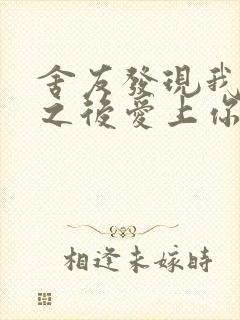 舍友發現我
之後愛上你
相逢未嫁時